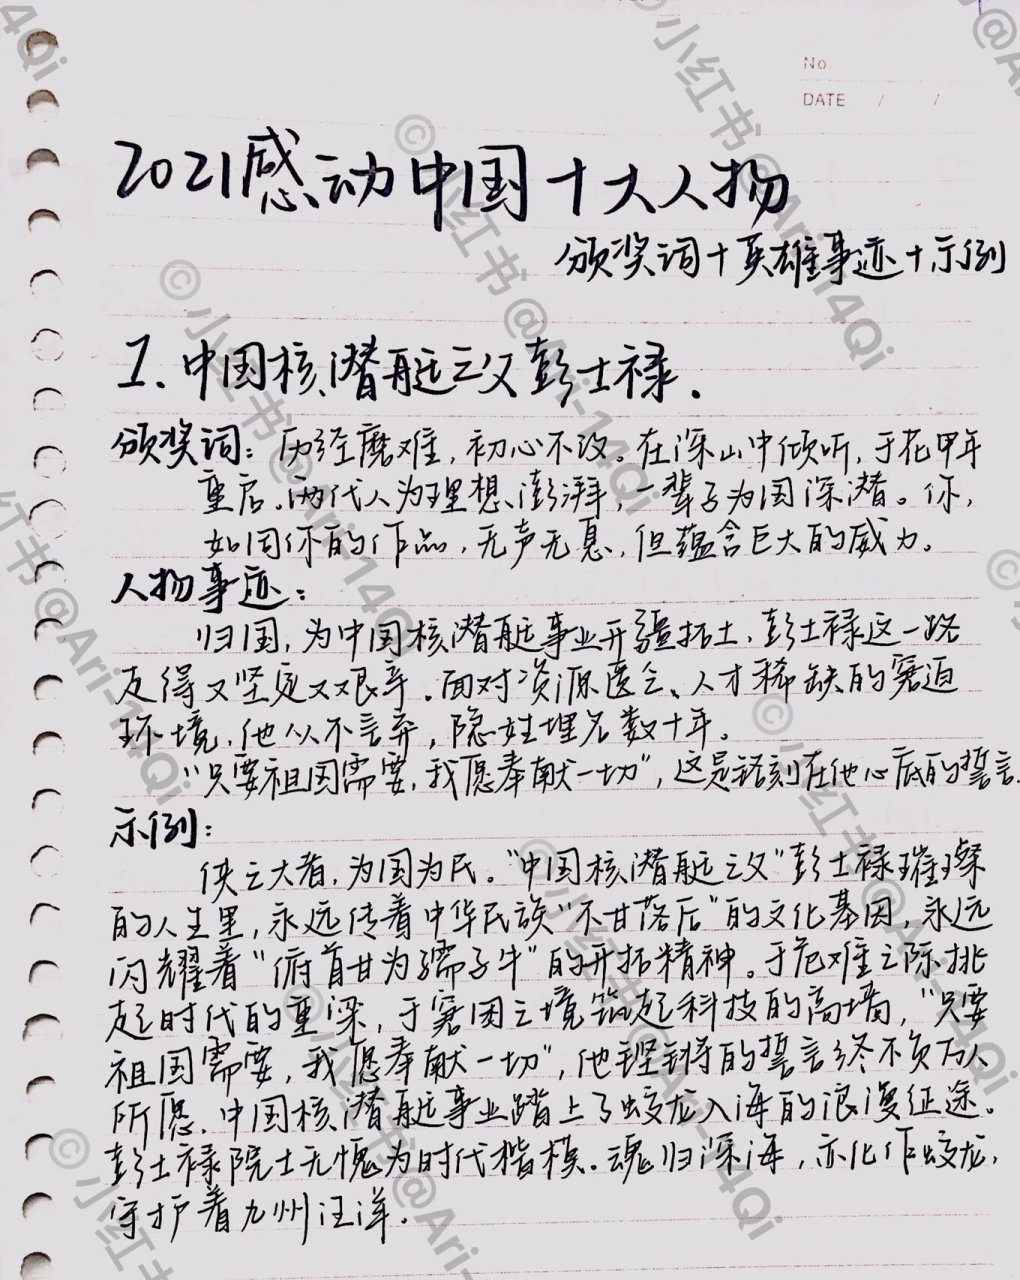 No
DATE / /
2021感动中国十大人物
颁奖词+英雄事迹+示例
1.中国核潜艇之父彭士禄.
颁奖词:历经磨难,初心不改。在深山中倾听,于花甲年
重启。两代人为理想、澎湃,一辈子为国深潜。你,
如同你的作品,无声无息,但蕴含巨大的威力。
人物事迹:
归国,为中国核潜艇事业开疆拓土,彭士禄这一路
走得又坚定又艰辛。面对资源匮乏、人才稀缺的窘迫
环境,他从不言弃,隐姓埋名数十年。
“只要祖国需要,我愿奉献一切”,这是铭刻在他心底的誓言.
示例:
侠之大者,为国为民。“中国核潜艇之父”彭士禄璀璨
的人生里,永远传着中华民族“不甘落后”的文化基因,永远
闪耀着“俯首甘为孺子牛”的开拓精神。于危难之际挑
起时代的重深,于窘困之境筑起科技的高墙,“只要
祖国需要,我愿奉献一切”,他铿锵的誓言终不负万人
所愿.中国核潜艇事业踏上了蛟龙入海的浪漫征途。
彭士禄院士无愧为时代楷模.魂归深海,亦化作蛟龙,
守护着九州汪洋.
©小红书@Ari-14Qi
©小红书@Ari-14Qi
©小红书@Ari-14Qi
©小红书@Ari-14Qi
©小红书@Ari-14Qi
©小红书@Ari-14Qi
©小红书@Ari-14Qi